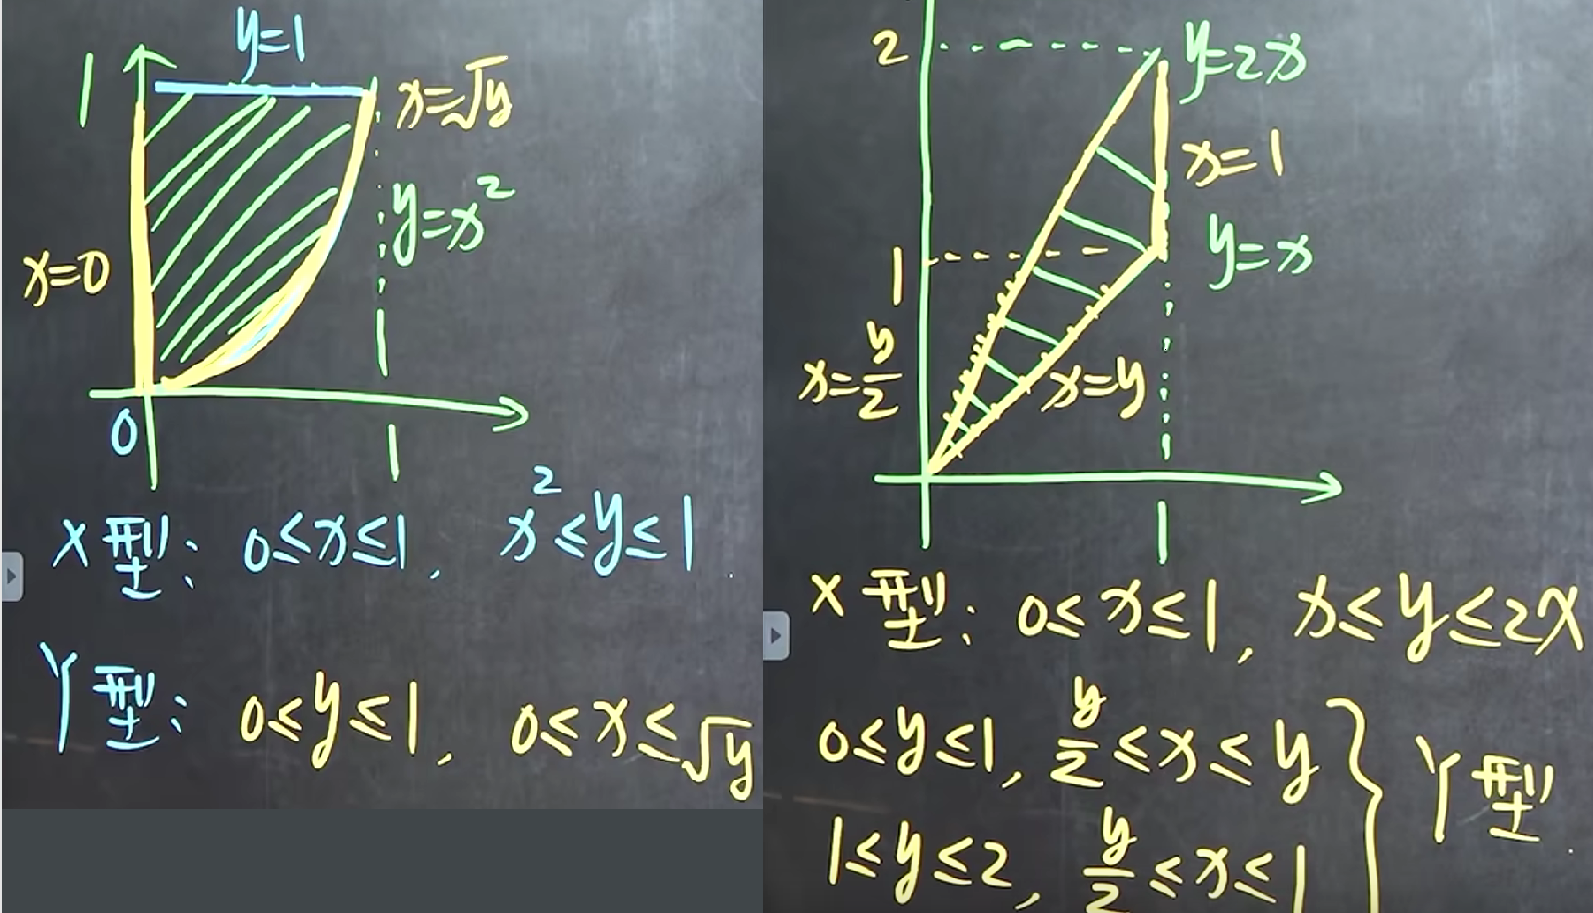 y=1
1
x=√y
y=x²
x=0
0
1
X型: 0≤x≤1, x²≤y≤1
Y型: 0≤y≤1, 0≤x≤√y
2
y=2x
x=1
1
y=x
x=y/2
x=y
1
X型: 0≤x≤1, x≤y≤2x
0≤y≤1, y/2≤x≤y
1≤y≤2, y/2≤x≤1
Y型